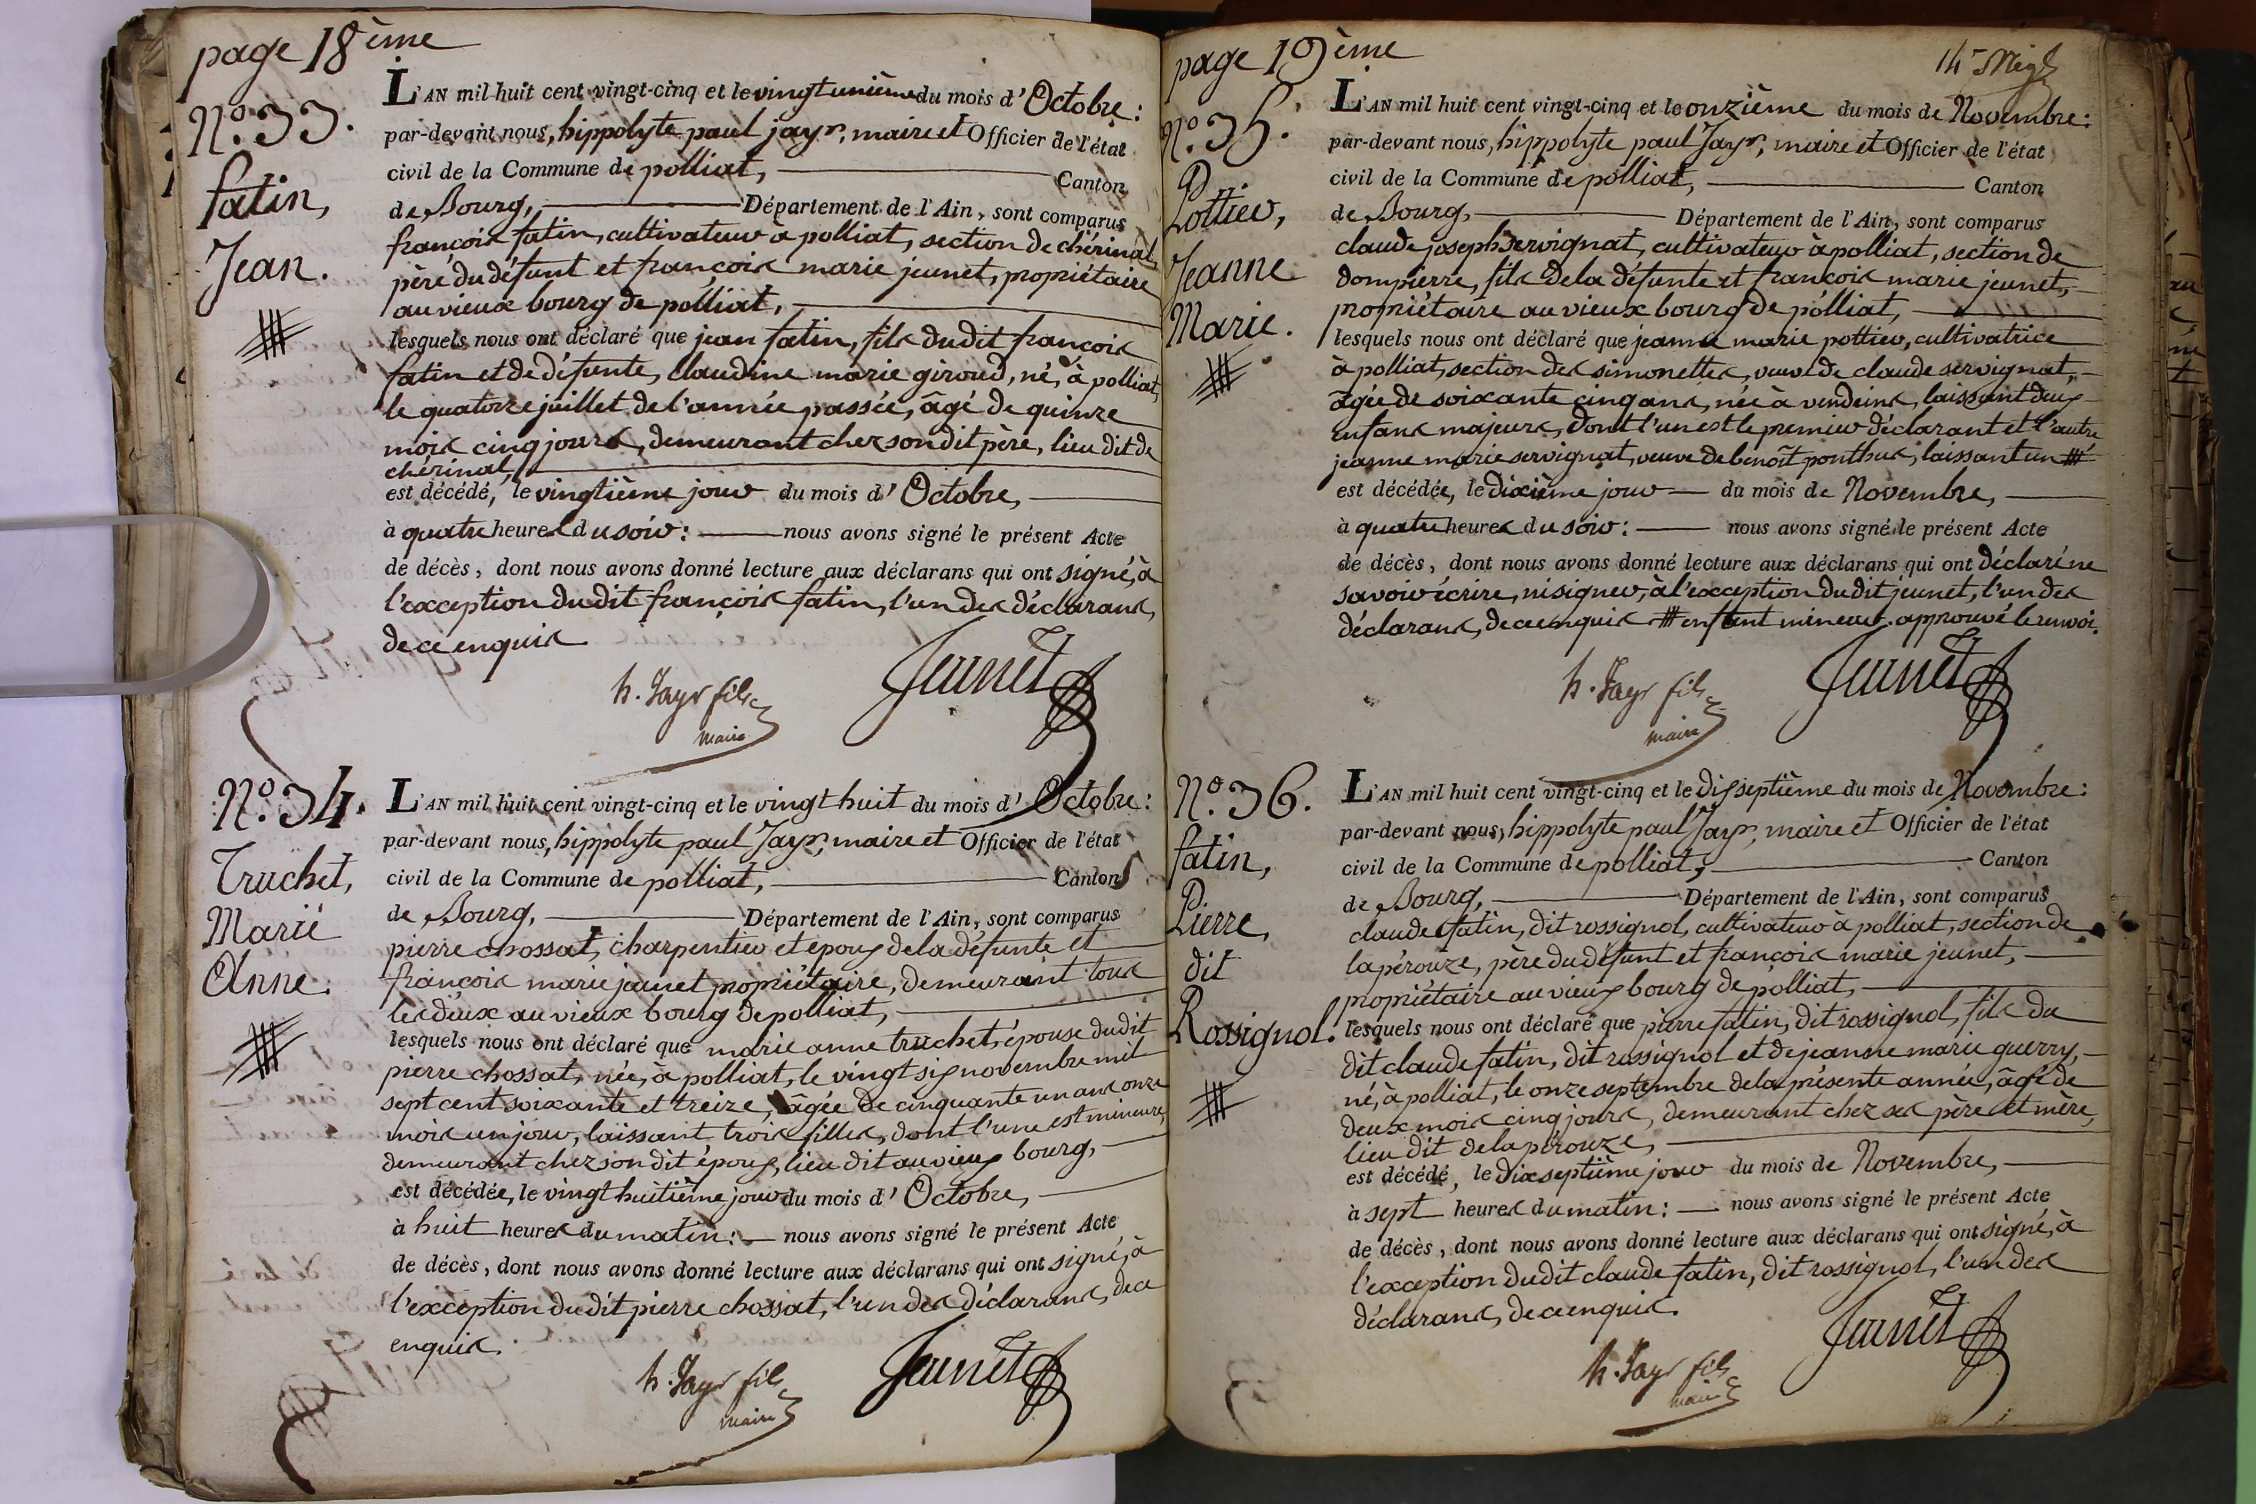 page 18ème
N.º 33.
fatin,
Jean.
L'AN mil huit cent vingt-cinq et le vingt unième du mois d'Octobre:
par-devant nous, hippolyte paul jayr, maire et Officier de l'état
civil de la Commune de polliat, Canton
de Bourg, Département de l'Ain, sont comparus
françois fatin, cultivateur à polliat, section de chérinal,
père du défunt et françois marie jeunet, propriétaire
au vieux bourg de polliat,
lesquels nous ont déclaré que jean fatin, fils dudit françois
fatin et de défunte, claudine marie giroud, né, à polliat,
le quatorze juillet de l'année passée, âgé de quinze
mois cinq jours, demeurant chez son dit père, lieu dit de
chérinal,
est décédé, le vingtième jour du mois d'Octobre,
à quatre heures du soir: nous avons signé le présent Acte
de décès, dont nous avons donné lecture aux déclarans qui ont signé, à
l'exception dudit françois fatin, l'un des déclarans,
de ce enquis
h. Jayr fils
maire
Jeunet
N.º 34.
Truchet,
Marie
Anne.
L'AN mil huit cent vingt-cinq et le vingt huit du mois d'Octobre:
par-devant nous, hippolyte paul Jayr, maire et Officier de l'état
civil de la Commune de polliat, Canton
de Bourg, Département de l'Ain, sont comparus
pierre chossat, charpentier et epoux de la défunte et
françois marie jeunet propriétaire, demeurant tous
les deux au vieux bourg de polliat,
lesquels nous ont déclaré que marie anne truchet, épouse dudit
pierre chossat, née, à polliat, le vingt six novembre mil
sept cent soixante et treize, âgée de cinquante un ans onze
mois un jour, laissant trois filles, dont l'une est mineure,
demeurant chez son dit époux, lieu dit au vieux bourg,
est décédée, le vingt huitième jour du mois d'Octobre,
à huit heures du matin: nous avons signé le présent Acte
de décès, dont nous avons donné lecture aux déclarans qui ont signé, à
l'exception dudit pierre chossat, l'un des déclarans, de ce
enquis.
h. Jayr fils
maire
Jeunet
page 19ème
N.º 35.
Pottier,
Jeanne
Marie.
L'AN mil huit cent vingt-cinq et le onzième du mois de Novembre:
par-devant nous, hippolyte paul Jayr, maire et Officier de l'état
civil de la Commune de polliat, Canton
de Bourg, Département de l'Ain, sont comparus
claude joseph servignat, cultivateur à polliat, section de
dompierre, fils de la défunte et françois marie jeunet,
propriétaire au vieux bourg de polliat,
lesquels nous ont déclaré que jeanne marie pottier, cultivatrice
à polliat, section des simonettes, veuve de claude servignat,
âgée de soixante cinq ans, née à vendeins, laissant deux
enfans majeurs, dont l'un est le premier déclarant et l'autre
jeanne marie servignat, veuve de benoît ponthus, laissant un
est décédée, le dixième jour du mois de Novembre,
à quatre heures du soir: nous avons signé le présent Acte
de décès, dont nous avons donné lecture aux déclarans qui ont déclaré ne
savoir écrire, ni signer, à l'exception dudit jeunet, l'un des
déclarans, de ce enquis enfant mineur. approuvé le renvoi.
h. Jayr fils
maire
Jeunet
N.º 36.
fatin,
Pierre,
dit
Rossignol.
L'AN mil huit cent vingt-cinq et le dixseptième du mois de Novembre:
par-devant nous, hippolyte paul Jayr, maire et Officier de l'état
civil de la Commune de polliat, Canton
de Bourg, Département de l'Ain, sont comparus
claude fatin, dit rossignol, cultivateur à polliat, section de
lapérouze, père du défunt et françois marie jeunet,
propriétaire au vieux bourg de polliat,
lesquels nous ont déclaré que pierre fatin, dit rossignol, fils du
dit claude fatin, dit rossignol et de jeanne marie guerry,
né, à polliat, le onze septembre de la présente année, âgé de
deux mois cinq jours, demeurant chez ses père et mère,
lieu dit de lapérouze,
est décédé, le dixseptième jour du mois de Novembre,
à sept heures du matin: nous avons signé le présent Acte
de décès, dont nous avons donné lecture aux déclarans qui ont signé, à
l'exception dudit claude fatin, dit rossignol, l'un des
déclarans, de ce enquis.
h. Jayr fils
maire
Jeunet